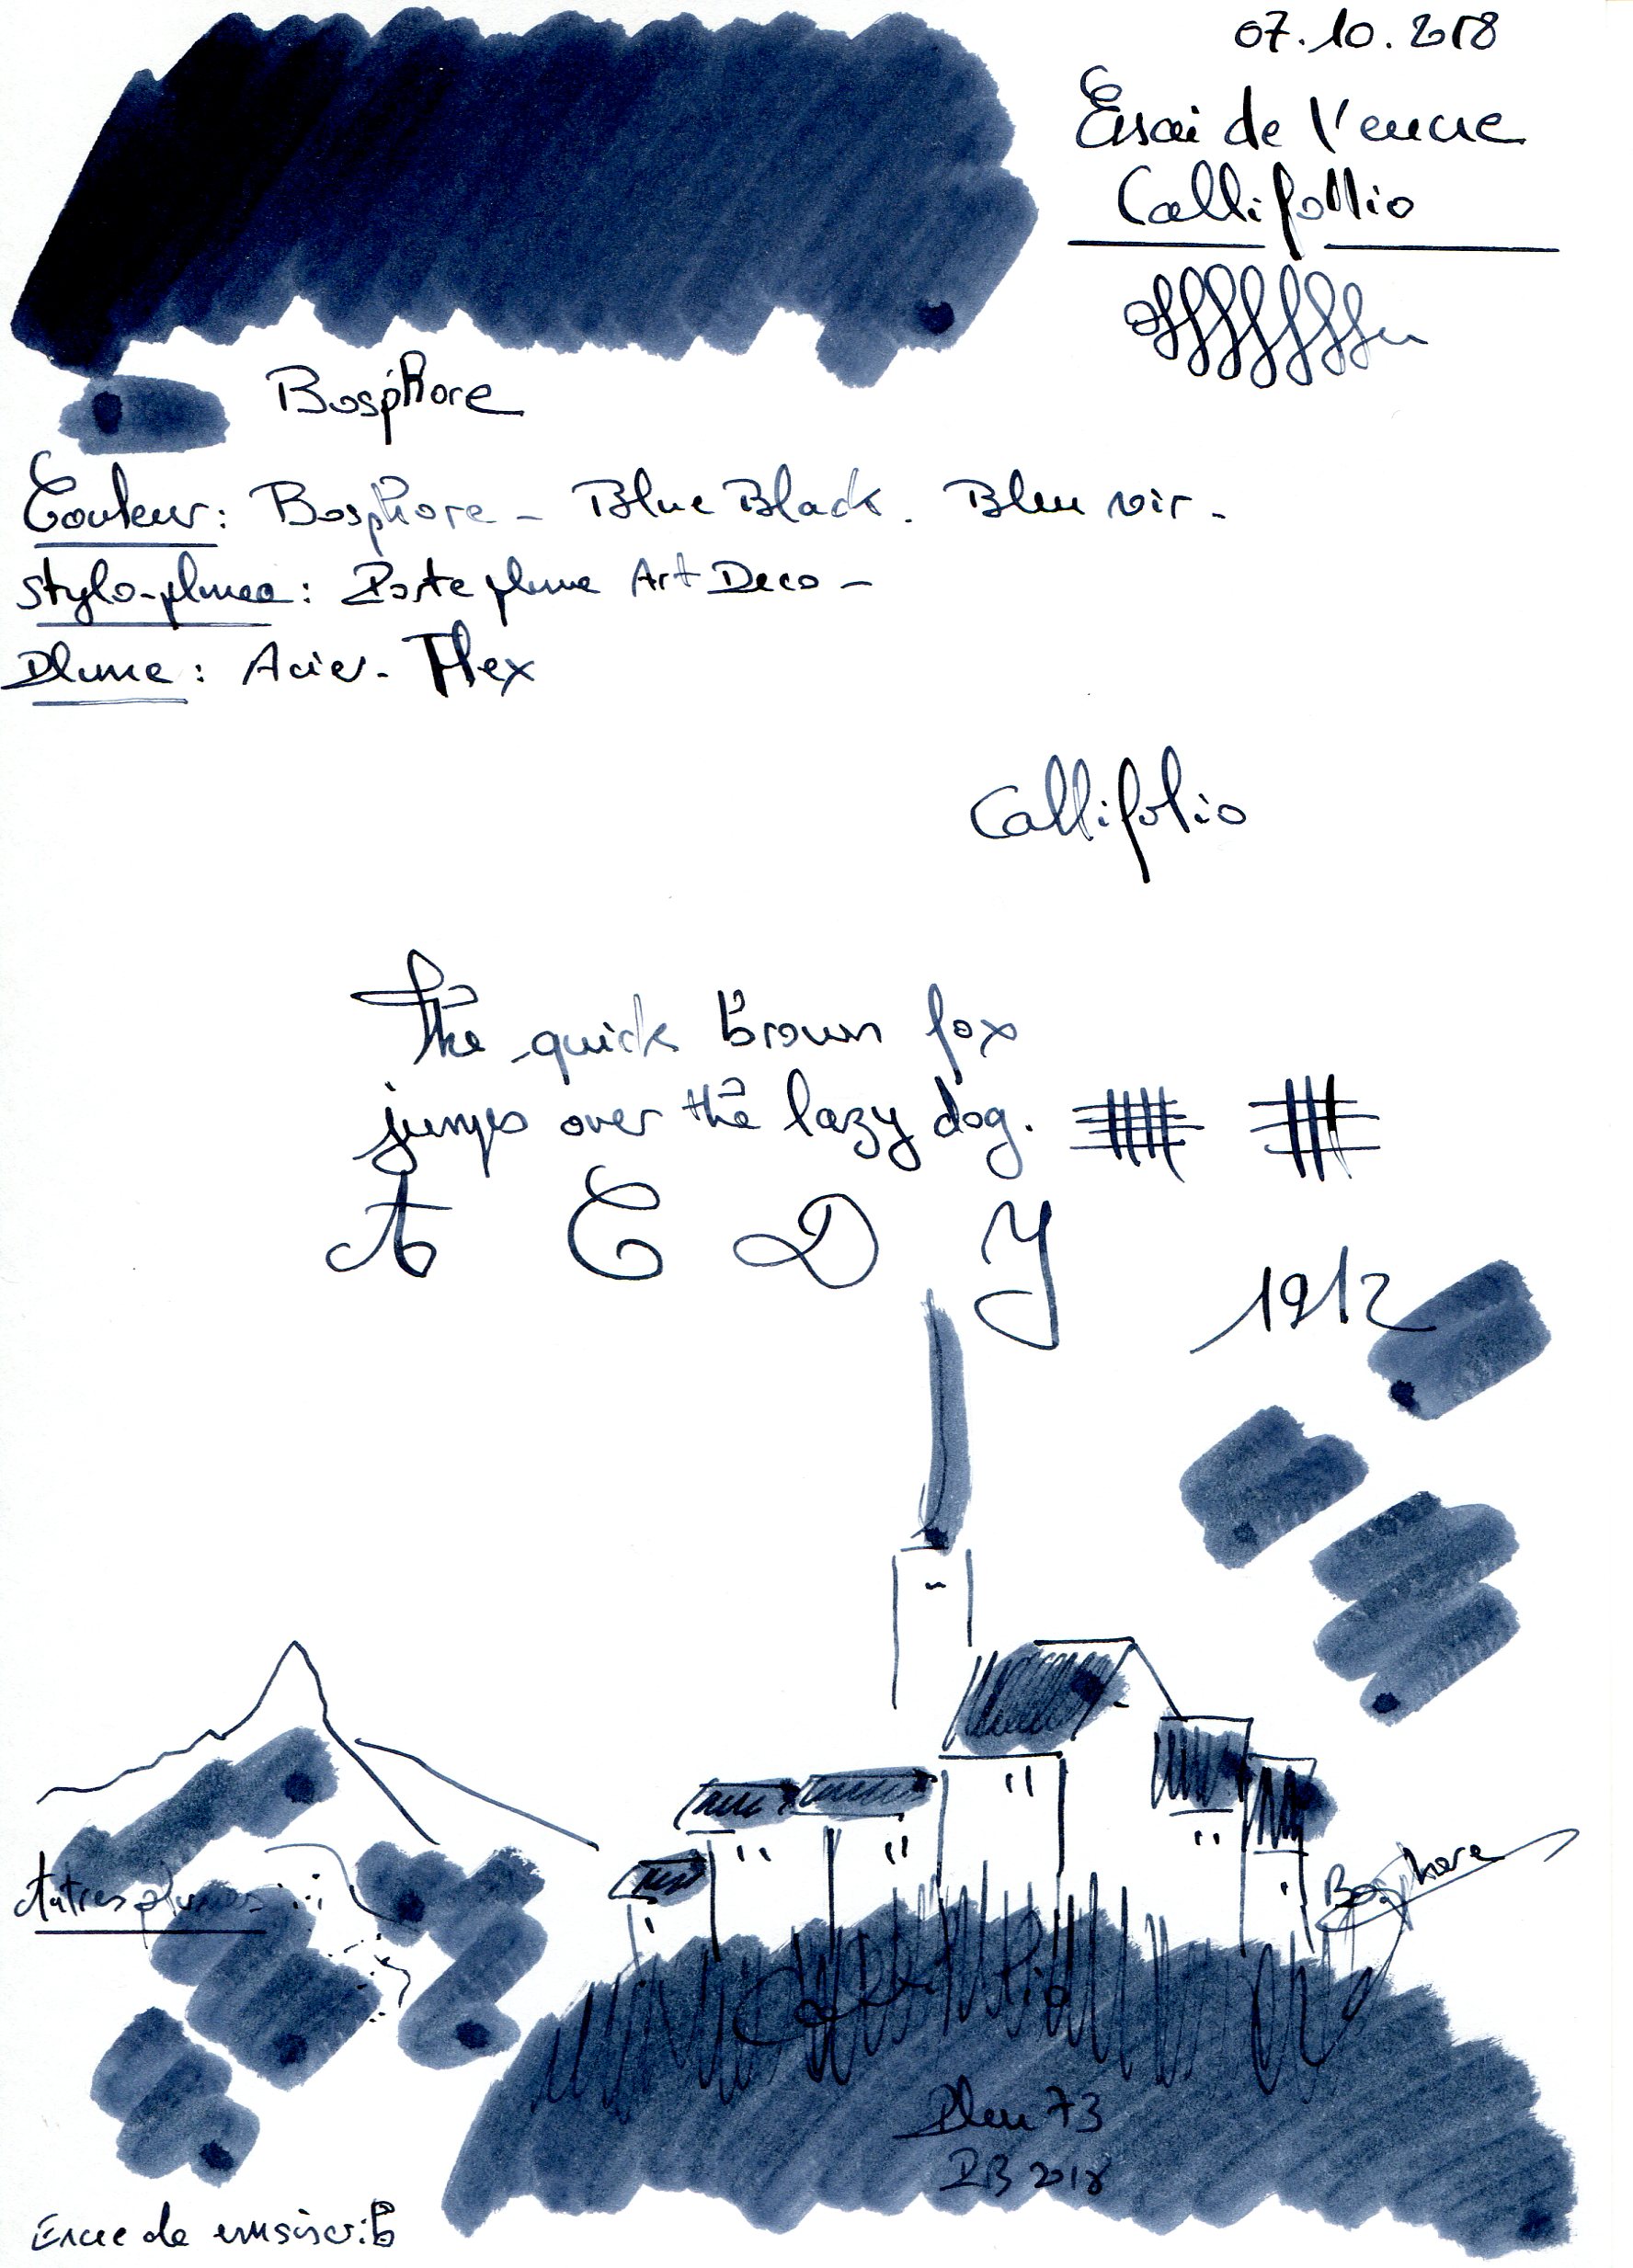 07.10.2018
Essai de l'encre
Callifollio
Bosphore
Couleur: Bosphore - Blue Black. Bleu noir -
Stylo-plume : Porte plume Art Deco -
Plume : Acier - Flex
Callifolio
The quick brown fox
jumps over the lazy dog.
A C D Y
1912
Autres plumes :
Bosphore
Plum 73
2018
Encre de